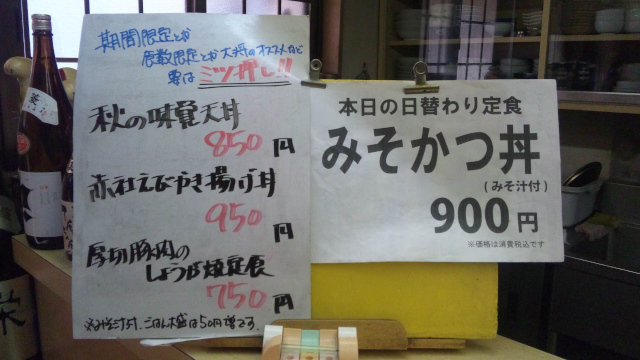 期間限定とか
食数限定とか大将のオススメなど
要は ミツ押し!!
秋の味覚天丼
850円
赤社えびかき揚げ丼
950円
厚切豚肉の
しょうが焼定食
750円
※みそ汁付. ごはん大盛は50円増です.
本日の日替わり定食
みそかつ丼
(みそ汁付)
900円
※価格は消費税込です